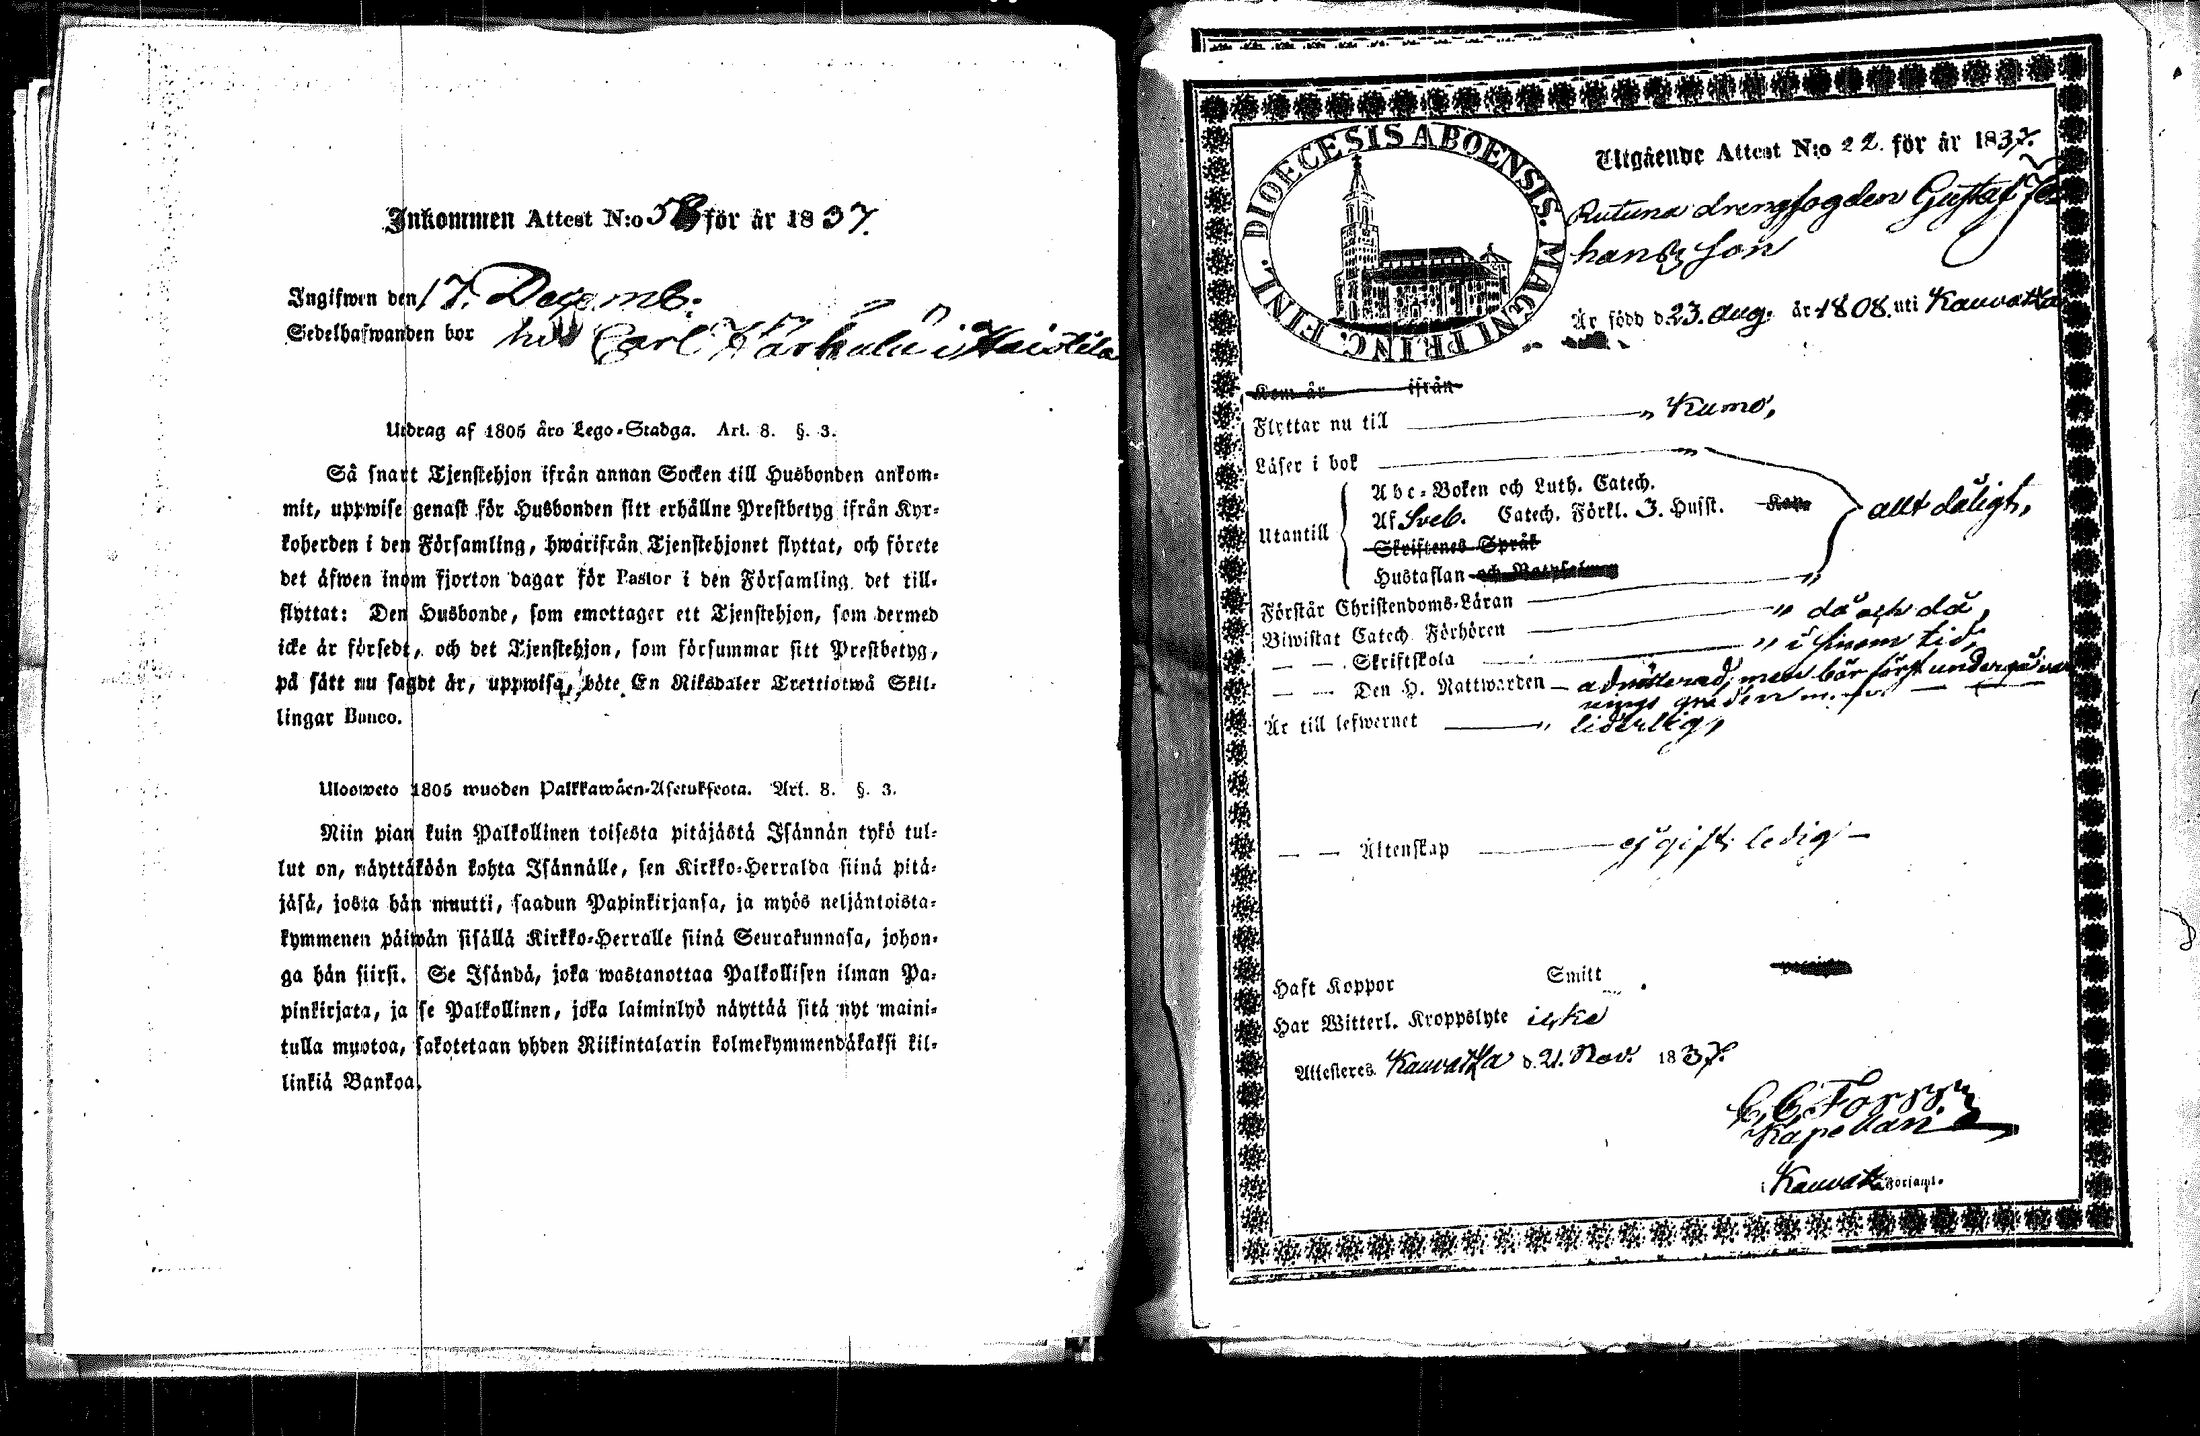 Inkommen Attest N:o 58 för år 1837.
Ingifwen den 17. Decemb:
Sedelhafwanden bor hos Carl Kärkulu i Haistila
Utdrag af 1805 års Lego-Stadga. Art. 8. §. 3.
Så snart Tjenstehjon ifrån annan Socken till Husbonden ankom-
mit, uppwise genast för Husbonden sitt erhållne Prestbetyg ifrån Kyr-
koherden i den Församling, hwarifrån Tjenstehjonet flyttat, och förete
det äfwen inom fjorton dagar för Pastor i den Församling det till-
flyttat: Den Husbonde, som emottager ett Tjenstehjon, som dermed
icke är försedt, och det Tjenstehjon, som försummar sitt Prestbetyg,
på sätt nu sagdt är, uppwisa, böte En Riksdaler Trettiotwå Skil-
lingar Banco.
Ulosweto 1805 wuoden Palkkawäen-Asetuksesta. Art. 8. §. 3.
Niin pian kuin Palkollinen toisesta pitäjästä Isännän tykö tul-
lut on, näyttäköön kohta Isännälle, sen Kirkko-Herralda siinä pitä-
jäsä, josta hän muutti, saadun Papinkirjansa, ja myös neljäntoista-
kymmenen päiwän sisällä Kirkko-Herralle siinä Seurakunnasa, johon-
ga hän siirsi. Se Isändä, joka wastanottaa Palkollisen ilman Pa-
pinkirjata, ja se Palkollinen, joka laiminlyö näyttää sitä nyt maini-
tulla muotoa, sakotetaan yhden Riikintalarin kolmekymmendäkaksi kil-
linkiä Bankoa.
DIOECESIS ABOENSIS. MAGNI PRINC. FINL.
Utgående Attest N:o 22. för år 1837.
Rutuna drengfogden Gustaf Jo
hansson
Är född d. 23. Aug. år 1808. uti Kauvatsa
Kom år ifrån
Flyttar nu till " Kumo,
Läser i bok "
Utantill
Abc-Boken och Luth. Catech.
Af Sveb. Catech. Förkl. 3. Husst. Kap.
Skriftenes Språk
Hustaflan och
allt dåligt,
Förstår Christendoms-Läran "
Biwistat Catech. Förhören " då och då,
— — Skriftskola " i sinom tid,
— — Den H. Nattwarden — admitterad, men bör först undergå var
nings graden m. m.
Är till lefwernet " liderlig,
— — Äktenskap ej gift. ledig —
Haft Koppor Smitt
Har Witterl. Kroppslyte icke
Attesteres Kauvatsa d. 21. Nov. 1837.
C. C. Forss
Kapellan
i Kauvats Församl.